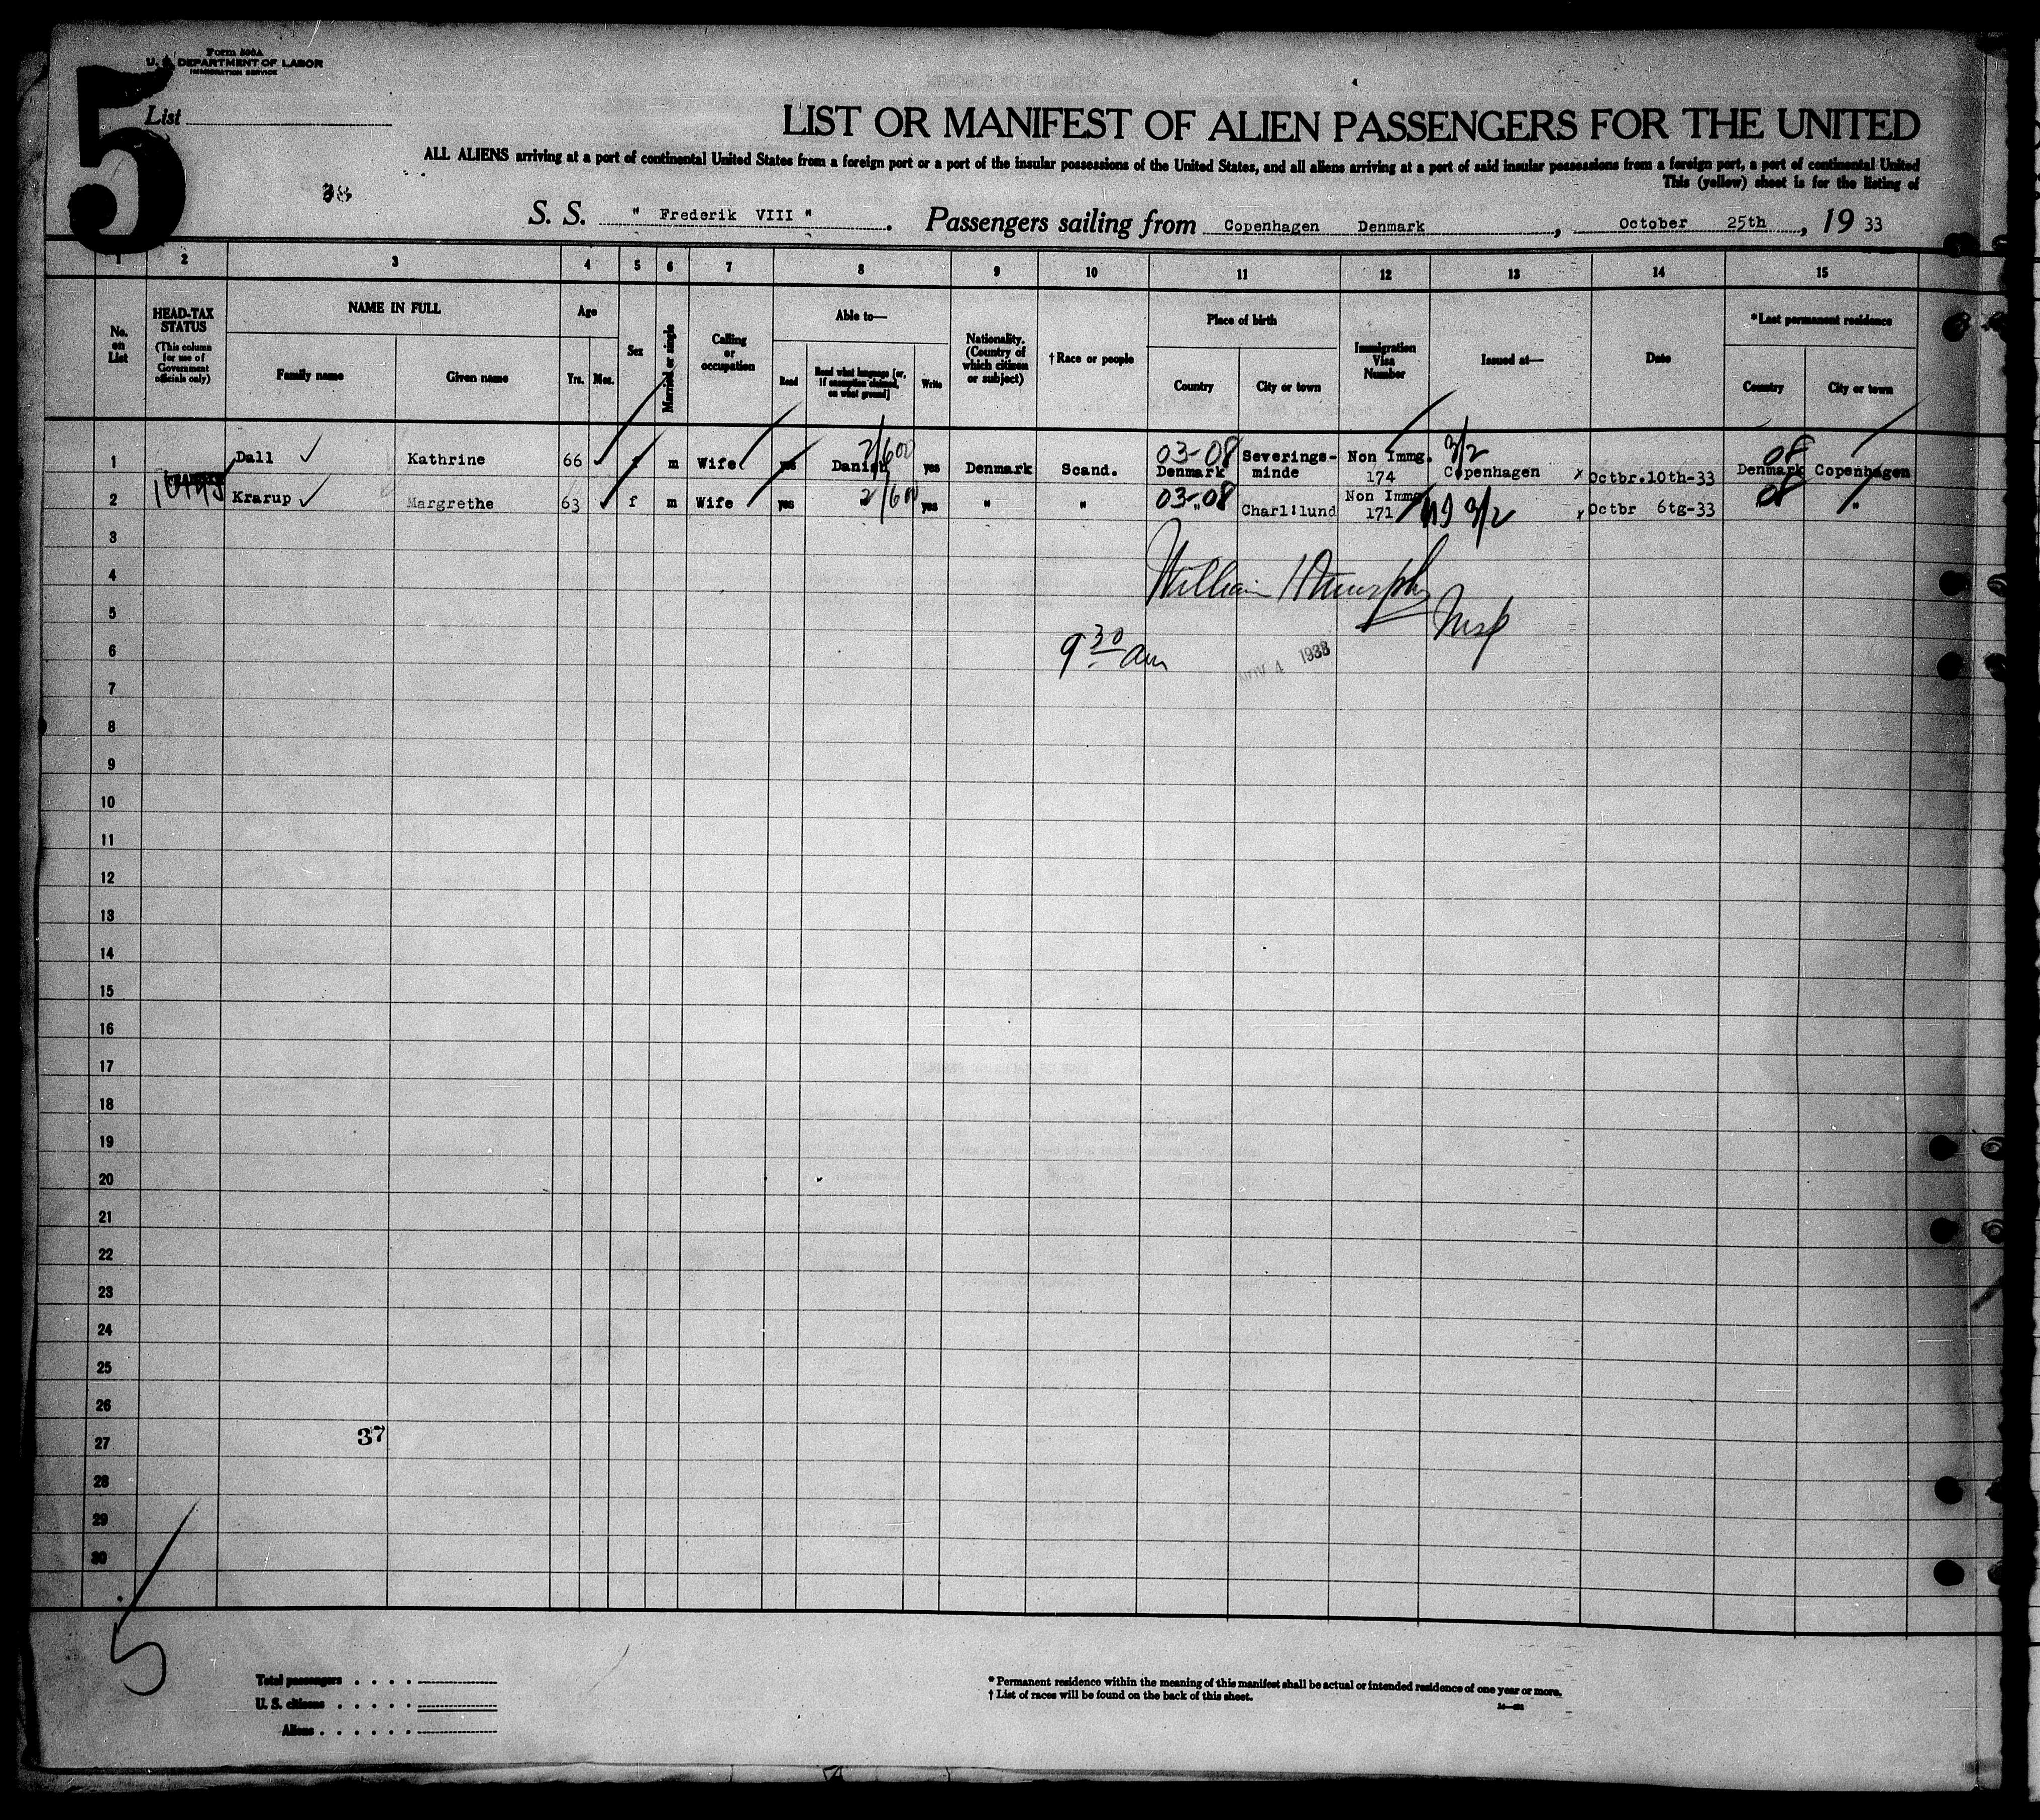 Form 500A
U. S. DEPARTMENT OF LABOR
IMMIGRATION SERVICE
5
List
LIST OR MANIFEST OF ALIEN PASSENGERS FOR THE UNITED
ALL ALIENS arriving at a port of continental United States from a foreign port or a port of the insular possessions of the United States, and all aliens arriving at a port of said insular possessions from a foreign port, a port of continental United
This (yellow) sheet is for the listing of
S. S. " Frederik VIII " . Passengers sailing from Copenhagen Denmark , October 25th , 19 33
1 2 3 4 5 6 7 8 9 10 11 12 13 14 15
No. on List
HEAD-TAX STATUS
(This column for use of Government officials only)
NAME IN FULL
Family name Given name
Age
Yrs. Mos.
Sex
Married or single
Calling or occupation
Able to—
Read Read what language [or, if exemption claimed, on what ground] Write
Nationality. (Country of which citizen or subject)
†Race or people
Place of birth
Country City or town
Immigration Visa Number
Issued at—
Date
*Last permanent residence
Country City or town
2/600 03-08 3/2 08
1 Dall Kathrine 66 f m Wife yes Danish yes Denmark Scand. Denmark Severings-minde Non Immg. 174 Copenhagen Octbr.10th-33 Denmark Copenhagen
2 Krarup Margrethe 63 f m Wife yes 2/600 yes " " 03-08 " Charl:lund Non Immg 171 3/2 Octbr 6tg-33 08 "
3
4 William H Murphy
5 Insp
6 9 30 am NOV 4 1933
7
8
9
10
11
12
13
14
15
16
17
18
19
20
21
22
23
24
25
26
27 37
28
29
30
5
Total passengers . . . .
U. S. citizens . . . . .
Aliens . . . . . .
* Permanent residence within the meaning of this manifest shall be actual or intended residence of one year or more.
† List of races will be found on the back of this sheet.